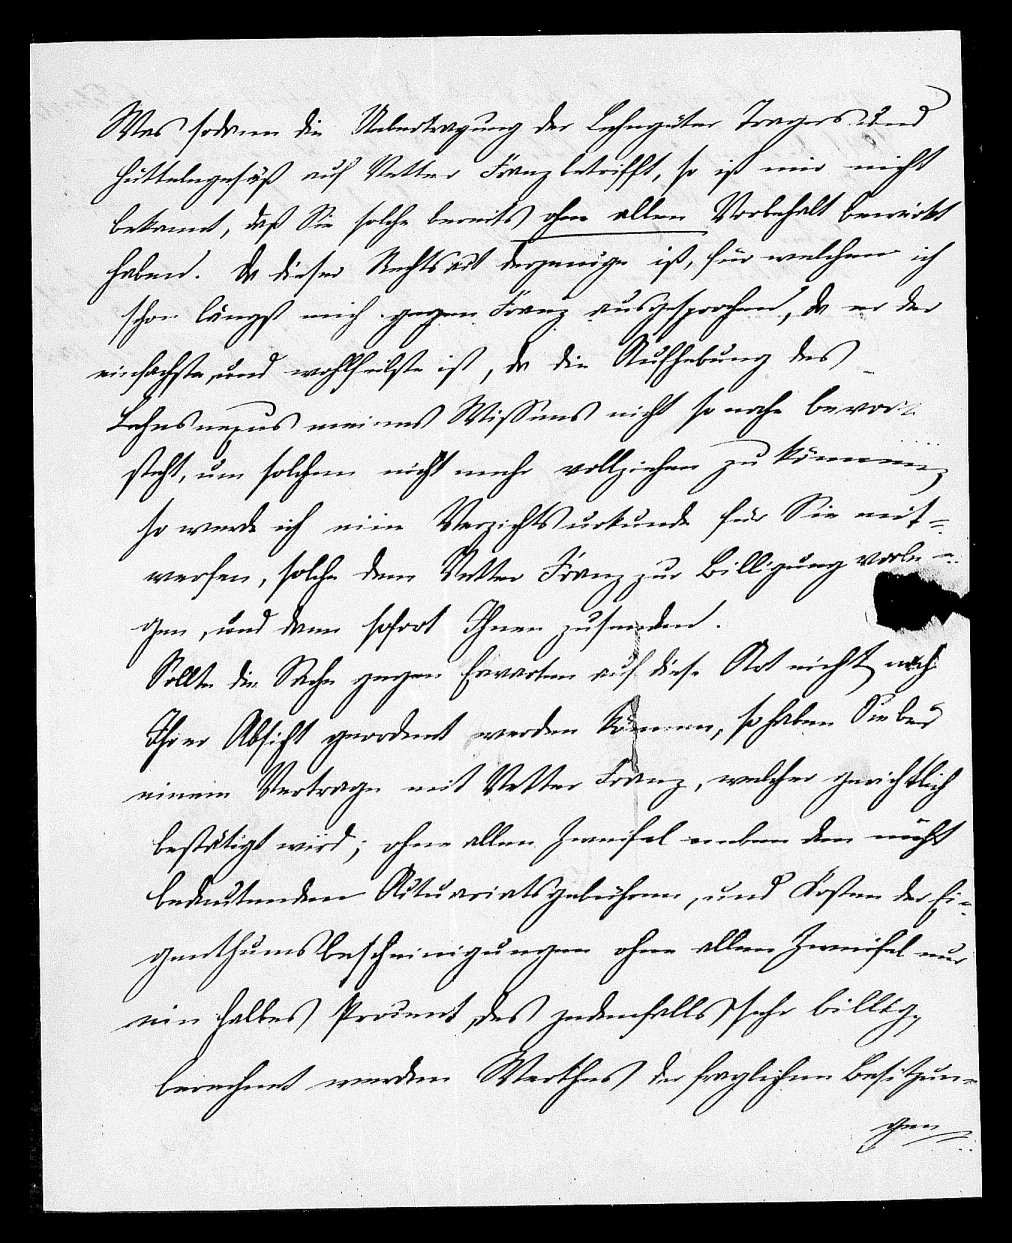 Was sodann die Uebertragung der Lehngüter Tragers und
Hüttelngesäß auf Vetter Franz betrifft, so ist mir nicht
bekannt, daß Sie solche bereits ohne allen Vorbehalt bewirkt
haben. Da dieser Rechtsakt derjenige ist, für welchen ich
schon längst mich gegen Franz ausgesprochen, da er der
einfachste und wohlfeilste ist, da die Aufhebung des
Lehnsnexus meines Wissens nicht so nahe bevor
steht, um solchen nicht mehr vollziehen zu können,
so werde ich eine Verzichtsurkunde für Sie ent-
werfen, solche dem Vetter Franz zur Billigung vorle-
gen, und dann sofort Ihnen zusenden.
Sollte die Sache gegen Erwarten auf diese Art nicht nach
Ihrer Absicht geordnet werden können, so haben Sie bei
einem Vertrage mit Vetter Franz, welcher gerichtlich
bestätigt wird, ohne allen Zweifel neben den nicht
bedeutenden Actuariatsgebühren, und Kosten der Ei-
genthumsbescheinigungen ohne allen Zweifel nur
ein halbes Procent des jedenfalls sehr billig
berechnet werden Werthes der fraglichen Besitzun-
gen